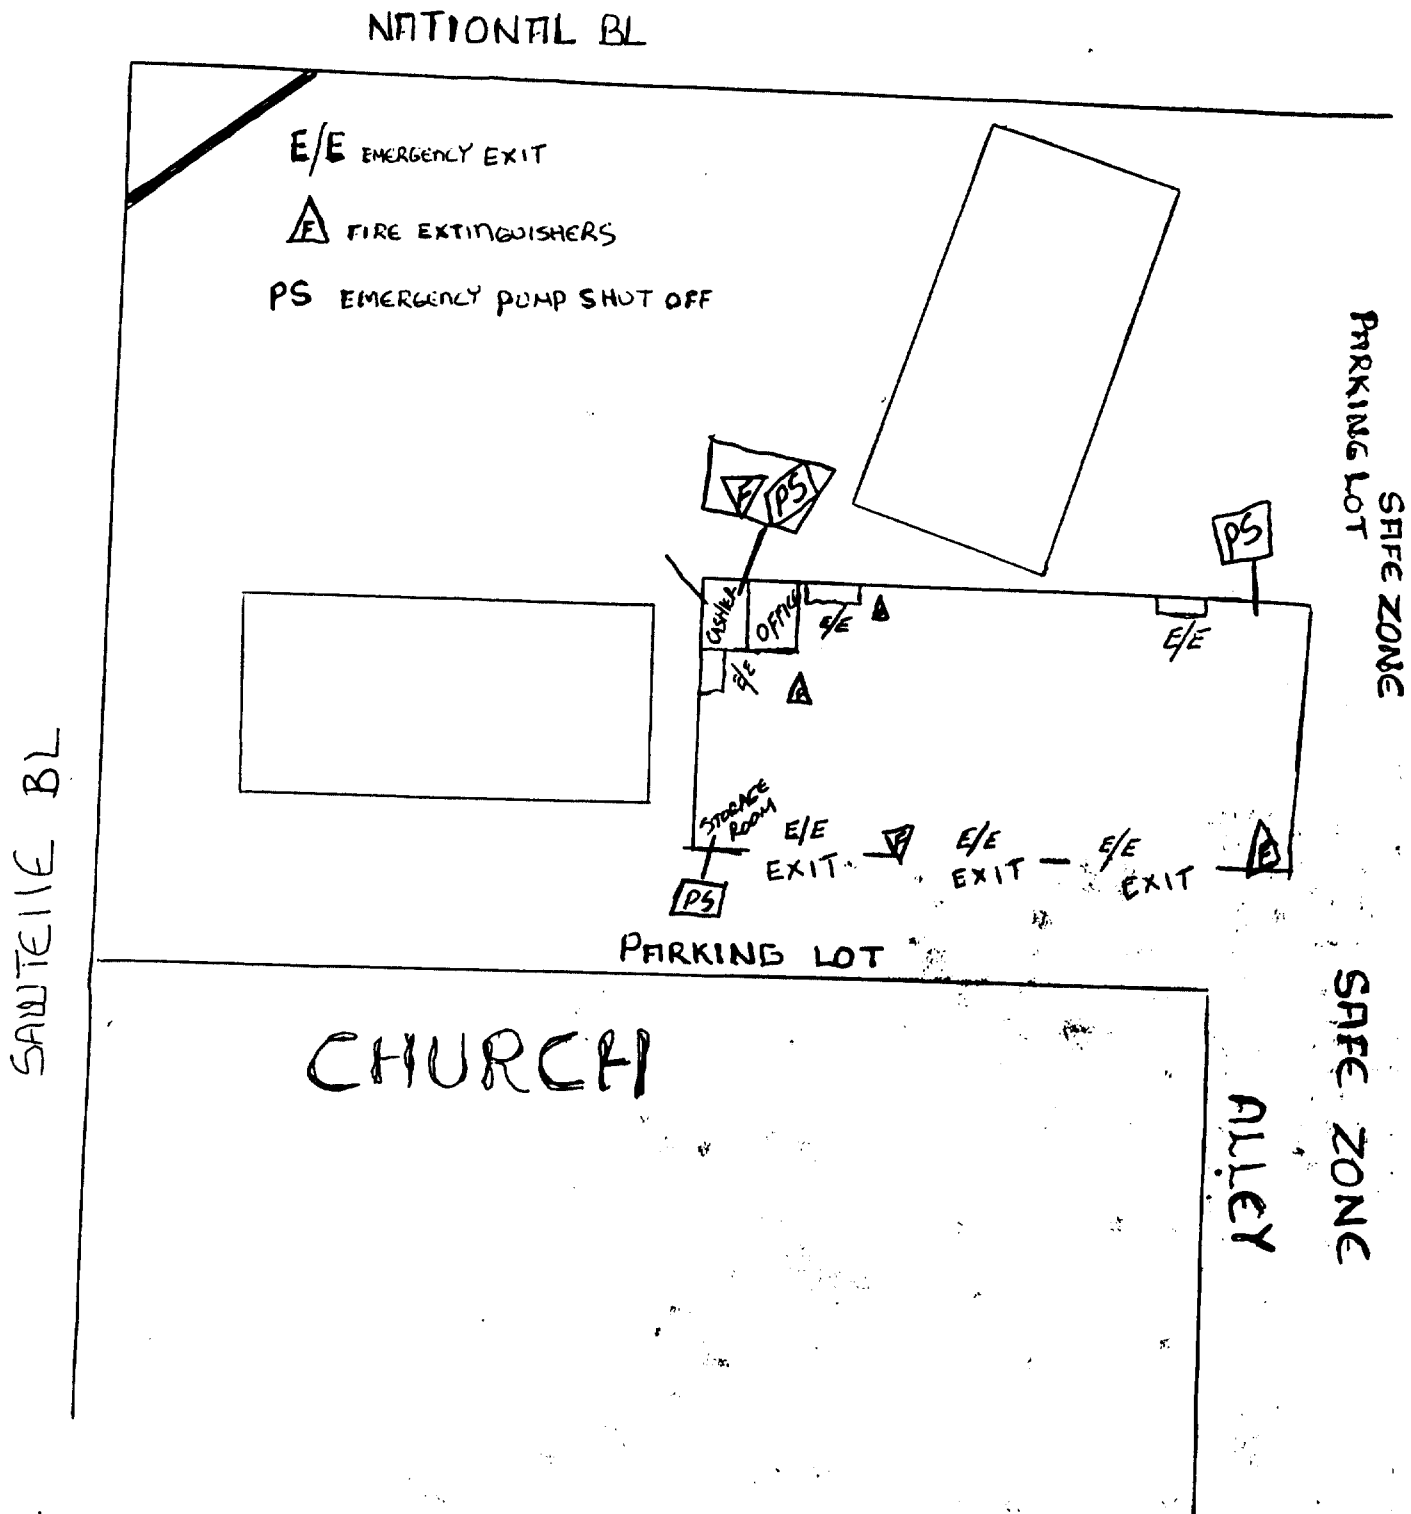 NATIONAL BL
E/E EMERGENCY EXIT
F FIRE EXTINGUISHERS
PS EMERGENCY PUMP SHUT OFF
PARKING LOT
SAFE ZONE
F PS
PS
CASHIER
OFFICE
E/E
F
E/E
E/E
F
STORAGE
ROOM
E/E
EXIT
F
E/E
EXIT
E/E
EXIT
F
PS
SAWTEllE BL
PARKING LOT
CHURCH
ALLEY
SAFE ZONE